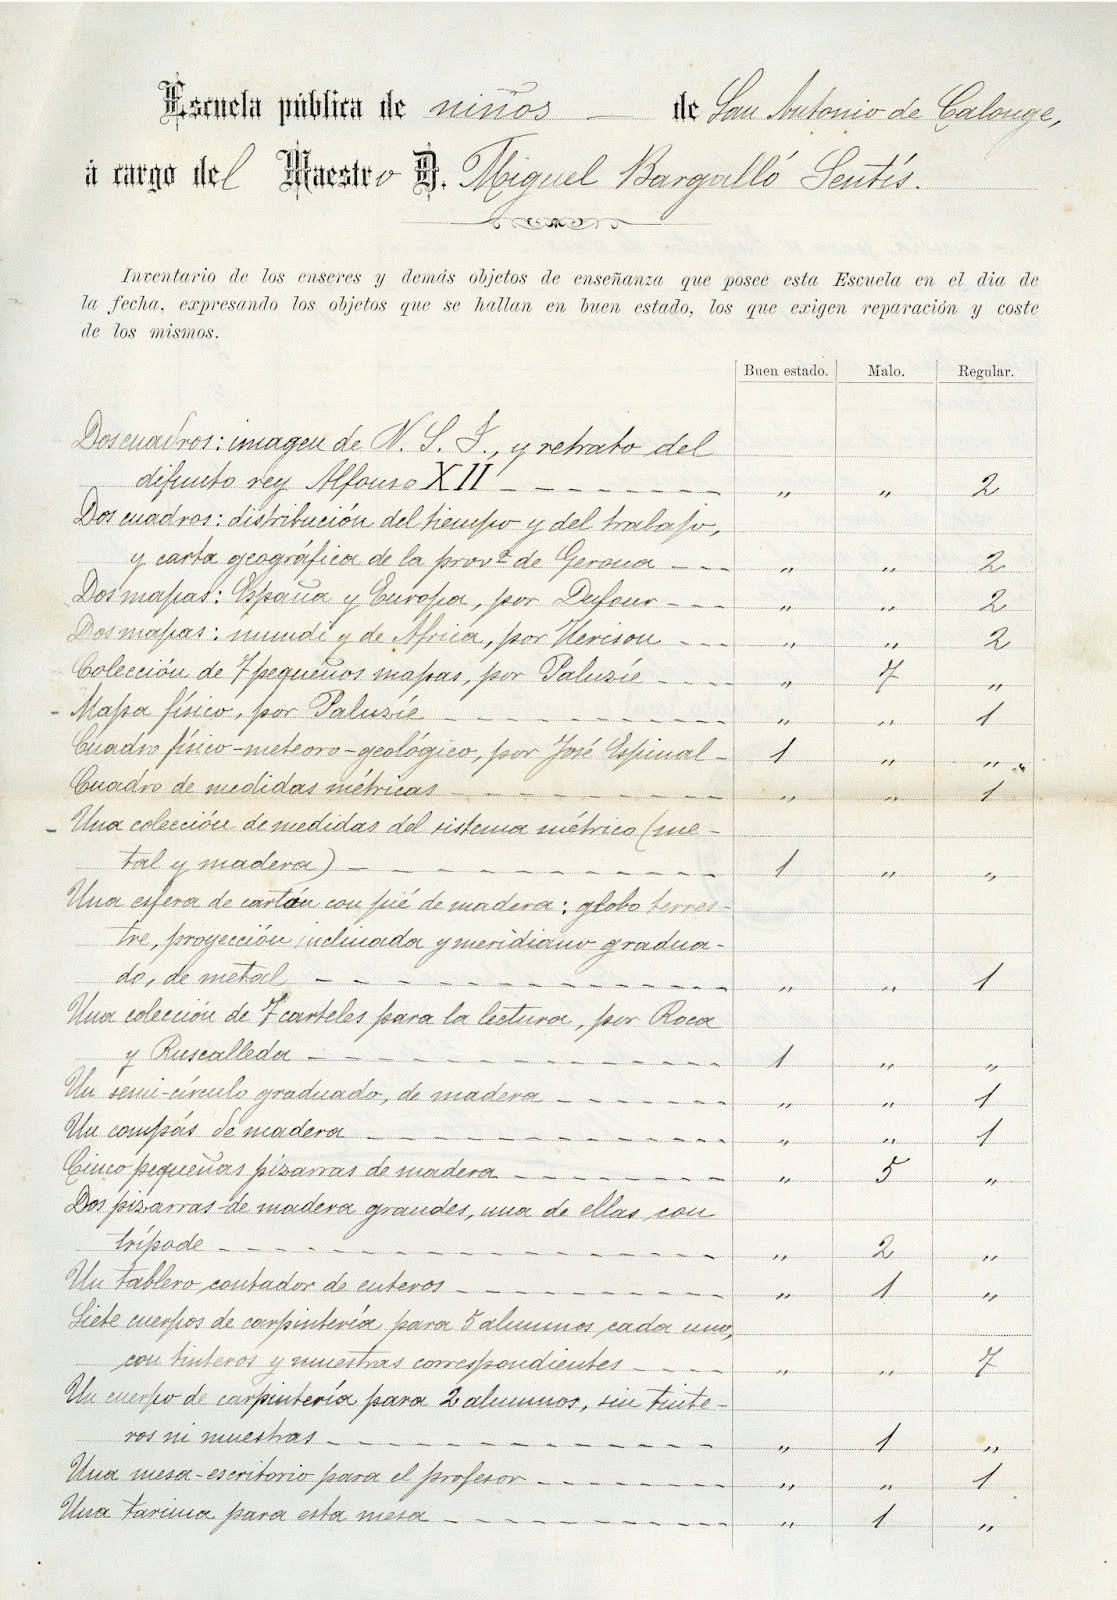 Escuela pública de niños — de San Antonio de Calonge,
á cargo del Maestro D. Miguel Bargalló Sentís.
Inventario de los enseres y demás objetos de enseñanza que posee esta Escuela en el dia de
la fecha, expresando los objetos que se hallan en buen estado, los que exigen reparación y coste
de los mismos.
Buen estado. Malo. Regular.
Dos cuadros: imagen de N. S. J., y retrato del
difunto rey Alfonso XII — „ „ 2
Dos cuadros: distribución del tiempo y del trabajo,
y carta geográfica de la provª de Gerona — „ „ 2
Dos mapas: España y Europa, por Dufour — „ „ 2
Dos mapas: mundi y de Africa, por Herison — „ „ 2
Colección de 7 pequeños mapas, por Paluzíe — „ 7 „
Mapa físico, por Paluzíe — „ „ 1
Cuadro físico-meteoro-geológico, por José Espinal — 1 „ „
Cuadro de medidas métricas — „ „ 1
Una colección de medidas del sistema métrico (me-
tal y madera) — 1 „ „
Una esfera de cartón con pié de madera: globo terres-
tre, proyección inclinada y meridiano gradua-
do, de metal — „ „ 1
Una colección de 7 carteles para la lectura, por Roca
y Ruscalleda — 1 „ „
Un semi-círculo graduado, de madera — „ „ 1
Un compás de madera — „ „ 1
Cinco pequeñas pizarras de madera — „ 5 „
Dos pizarras de madera grandes, una de ellas con
trípode — „ 2 „
Un tablero contador de enteros — „ 1 „
Siete cuerpos de carpintería para 5 alumnos cada uno,
con tinteros y muestras correspondientes — „ „ 7
Un cuerpo de carpintería para 2 alumnos, sin tinte-
ros ni muestras — „ 1 „
Una mesa-escritorio para el profesor — „ „ 1
Una tarima para esta mesa — „ 1 „